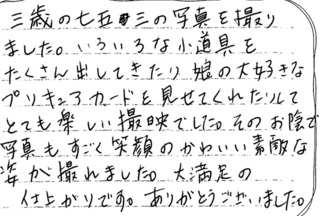 三歳の七五三の写真を撮り
ました。いろいろな小道具を
たくさん出してきたり 娘の大好きな
プリキュアカードを見せてくれたりして
とても楽しい撮映でした。そのお陰で
写真もすごく笑顔のかわいい素敵な
姿が撮れました。大満足の
仕上がりです。ありがとうございました。